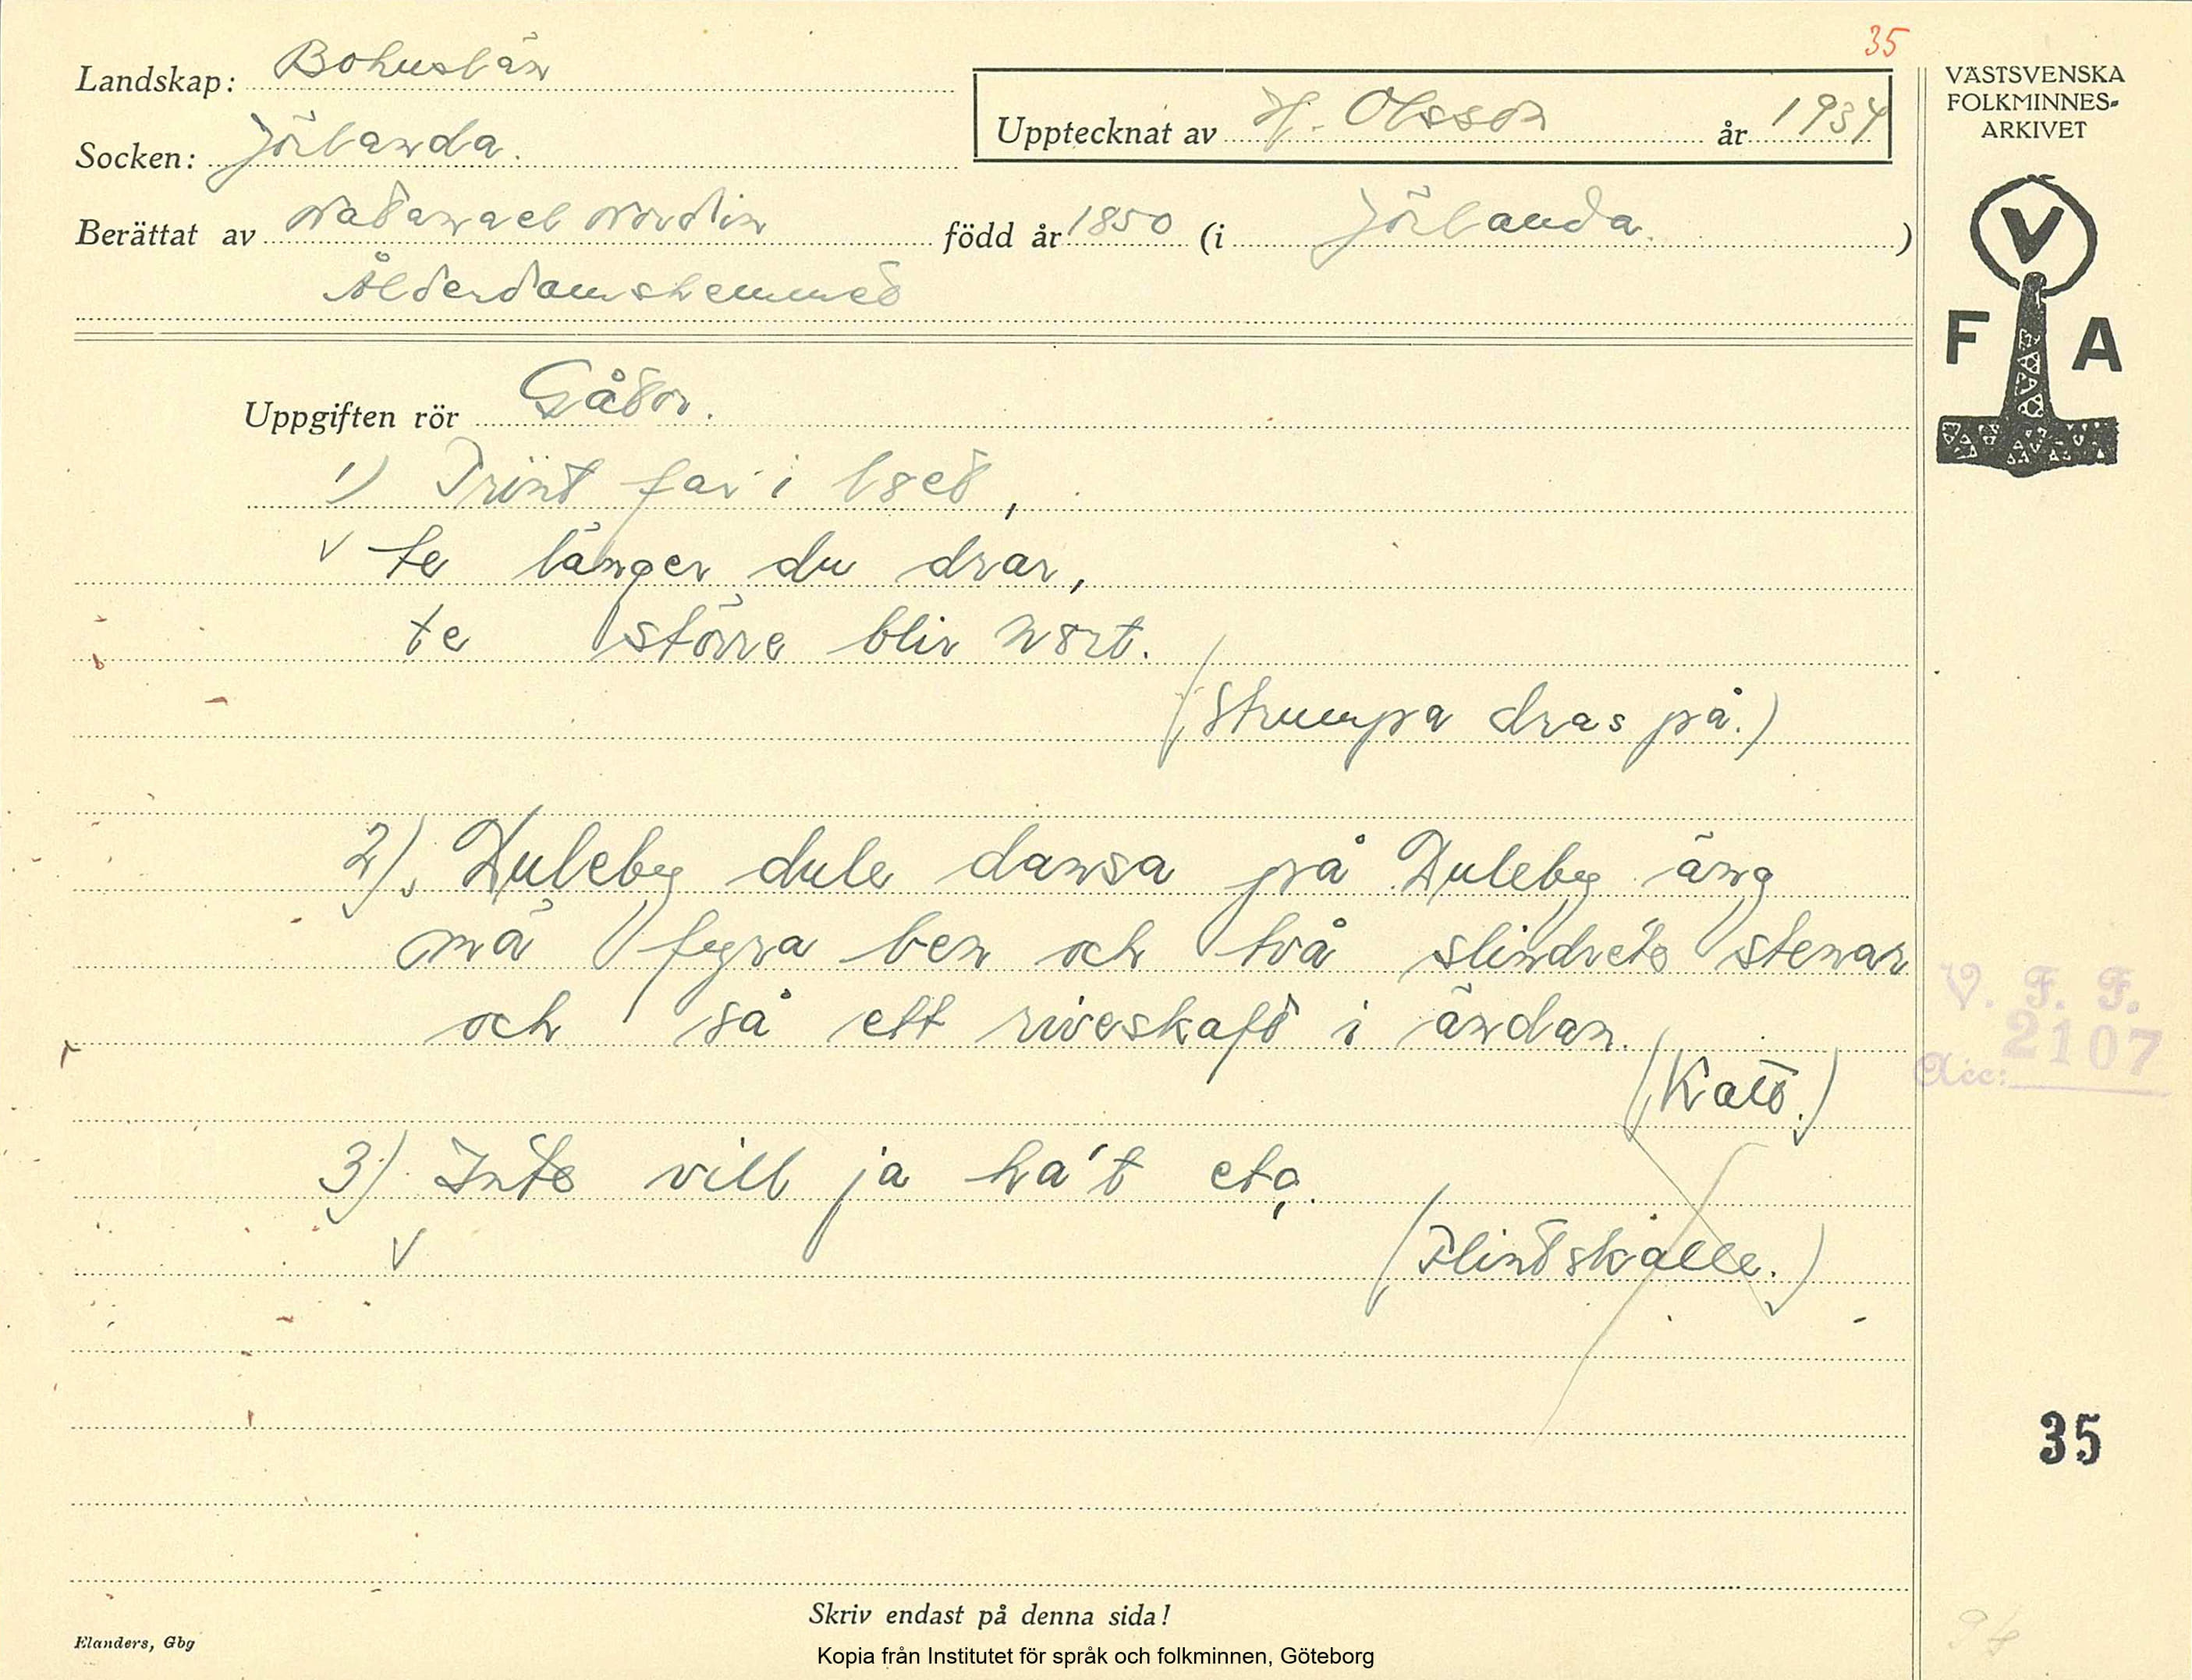 35
Landskap: Bohuslän
Socken: Jörlanda.
Upptecknat av Hj. Olsson år 1934
Berättat av Natanael Nordin född år 1850 (i Jörlanda.)
Ålderdomshemmet
VÄSTSVENSKA
FOLKMINNES-
ARKIVET
V
F A
Uppgiften rör Gåtor.
1) Trint far i lset,
te länger du drar,
te större blir nört.
(Strumpa dras på.)
2). Duleby dule dansa på Duleby äng
mä fyra ben och två slindrete stenar
och så ett riveskaft i ändan.
(Katt.)
3) Inte vill ja ha't etc.
(Flintskalle.)
V. F. F.
Acc: 2107
35
Skriv endast på denna sida!
Elanders, Gbg
Kopia från Institutet för språk och folkminnen, Göteborg